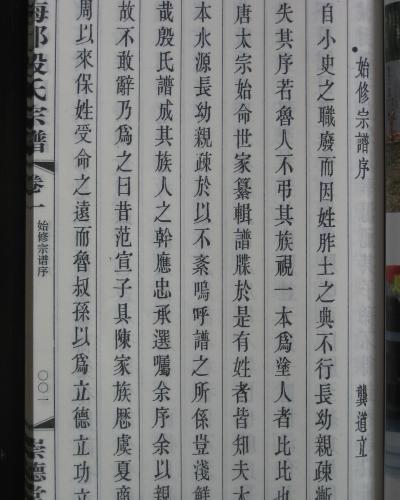 始修宗譜序
龔道立
自小史之職廢而因姓胙土之典不行長幼親疎漸
失其序若魯人不弔其族視一本為塗人者比比也
唐太宗始命世家纂輯譜牒於是有姓者皆知夫木
本水源長幼親疎於以不紊嗚呼譜之所係豈淺鮮
哉殷氏譜成其族人之幹應忠承選囑余序余以親
故不敢辭乃為之曰昔范宣子具陳家族歷虞夏商
周以來保姓受命之遠而魯叔孫以為立德立功立
殷氏宗譜
卷一
始修宗谱序
〇〇一
崇德堂